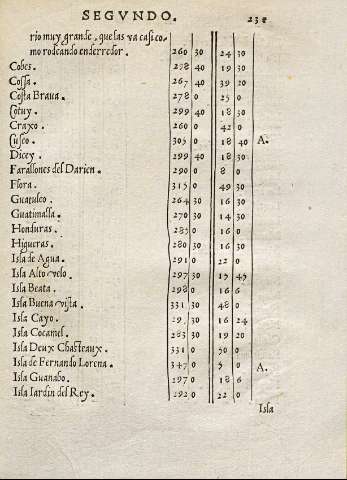 SEGVNDO.
rio muy grande, que las va casi co-
mo rodeando enderredor. 260 30 24 30
Cobes. 298 40 19 30
Cossa. 267 40 39 20
Costa Braua. 278 0 25 0
Cotuy. 299 40 18 30
Craxo. 260 0 42 0
Cusco. 305 0 18 40 A.
Dicey. 299 40 18 30
Farallones del Darien. 290 0 8 0
Flora. 315 0 49 30
Guatulco. 264 30 16 30
Guatimalla. 270 30 14 30
Honduras. 285 0 16 0
Higueras. 280 30 16 30
Isla de Agua. 291 0 22 0
Isla Alto velo. 297 30 15 45
Isla Beata. 298 0 16 6
Isla Buena vista. 331 30 48 0
Isla Cayo. 30 16 24
Isla Cocamel. 283 30 19 20
Isla Deux Chasteaux. 331 0 50 0
Isla de Fernando Lorena. 347 0 5 0 A.
Isla Guanabo. 297 0 18 6
Isla Iardin del Rey. 292 0 22 0
Isla